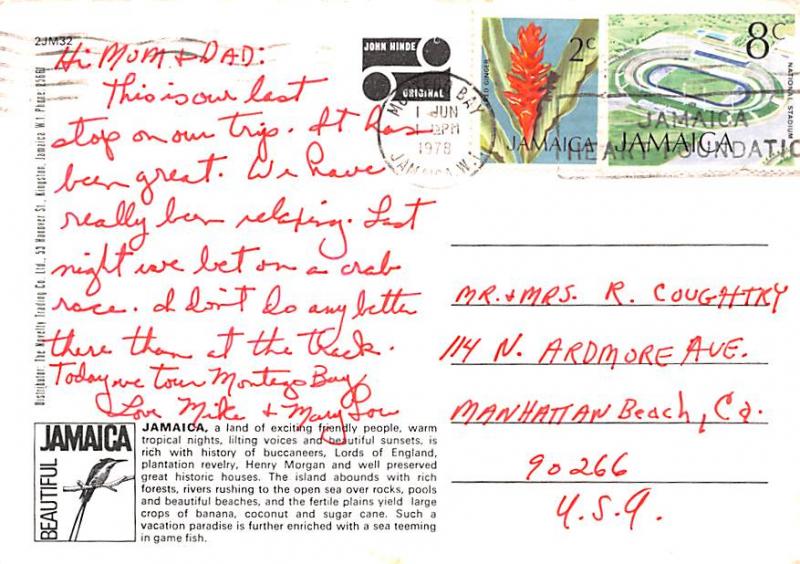 2JM32
Hi Mum & DAD:
This is our last
stop on our trip. It has
been great. We have
really been relaxing. Last
night we bet on a crab
race. I don't do any better
there than at the track.
Today we tour Montego Bay
Love Mike & Mary Lou
Distributor: The Novelty Trading Co. Ltd., 53 Hanover St., Kingston, Jamaica W.I. Phone
JOHN HINDE
ORIGINAL
BAY
1 JUN
PM
1978
JAMAICA W.I.
2c
RED GINGER
JAMAICA
8c
NATIONAL STADIUM
JAMAICA
JAMAICA
HEART FOUNDATIO
MR. & MRS. R. COUGHTRY
114 N. ARDMORE AVE.
MANHATTAN Beach, Ca.
90266
U.S.A.
BEAUTIFUL JAMAICA
JAMAICA, a land of exciting friendly people, warm
tropical nights, lilting voices and beautiful sunsets, is
rich with history of buccaneers, Lords of England,
plantation revelry, Henry Morgan and well preserved
great historic houses. The island abounds with rich
forests, rivers rushing to the open sea over rocks, pools
and beautiful beaches, and the fertile plains yield large
crops of banana, coconut and sugar cane. Such a
vacation paradise is further enriched with a sea teeming
in game fish.